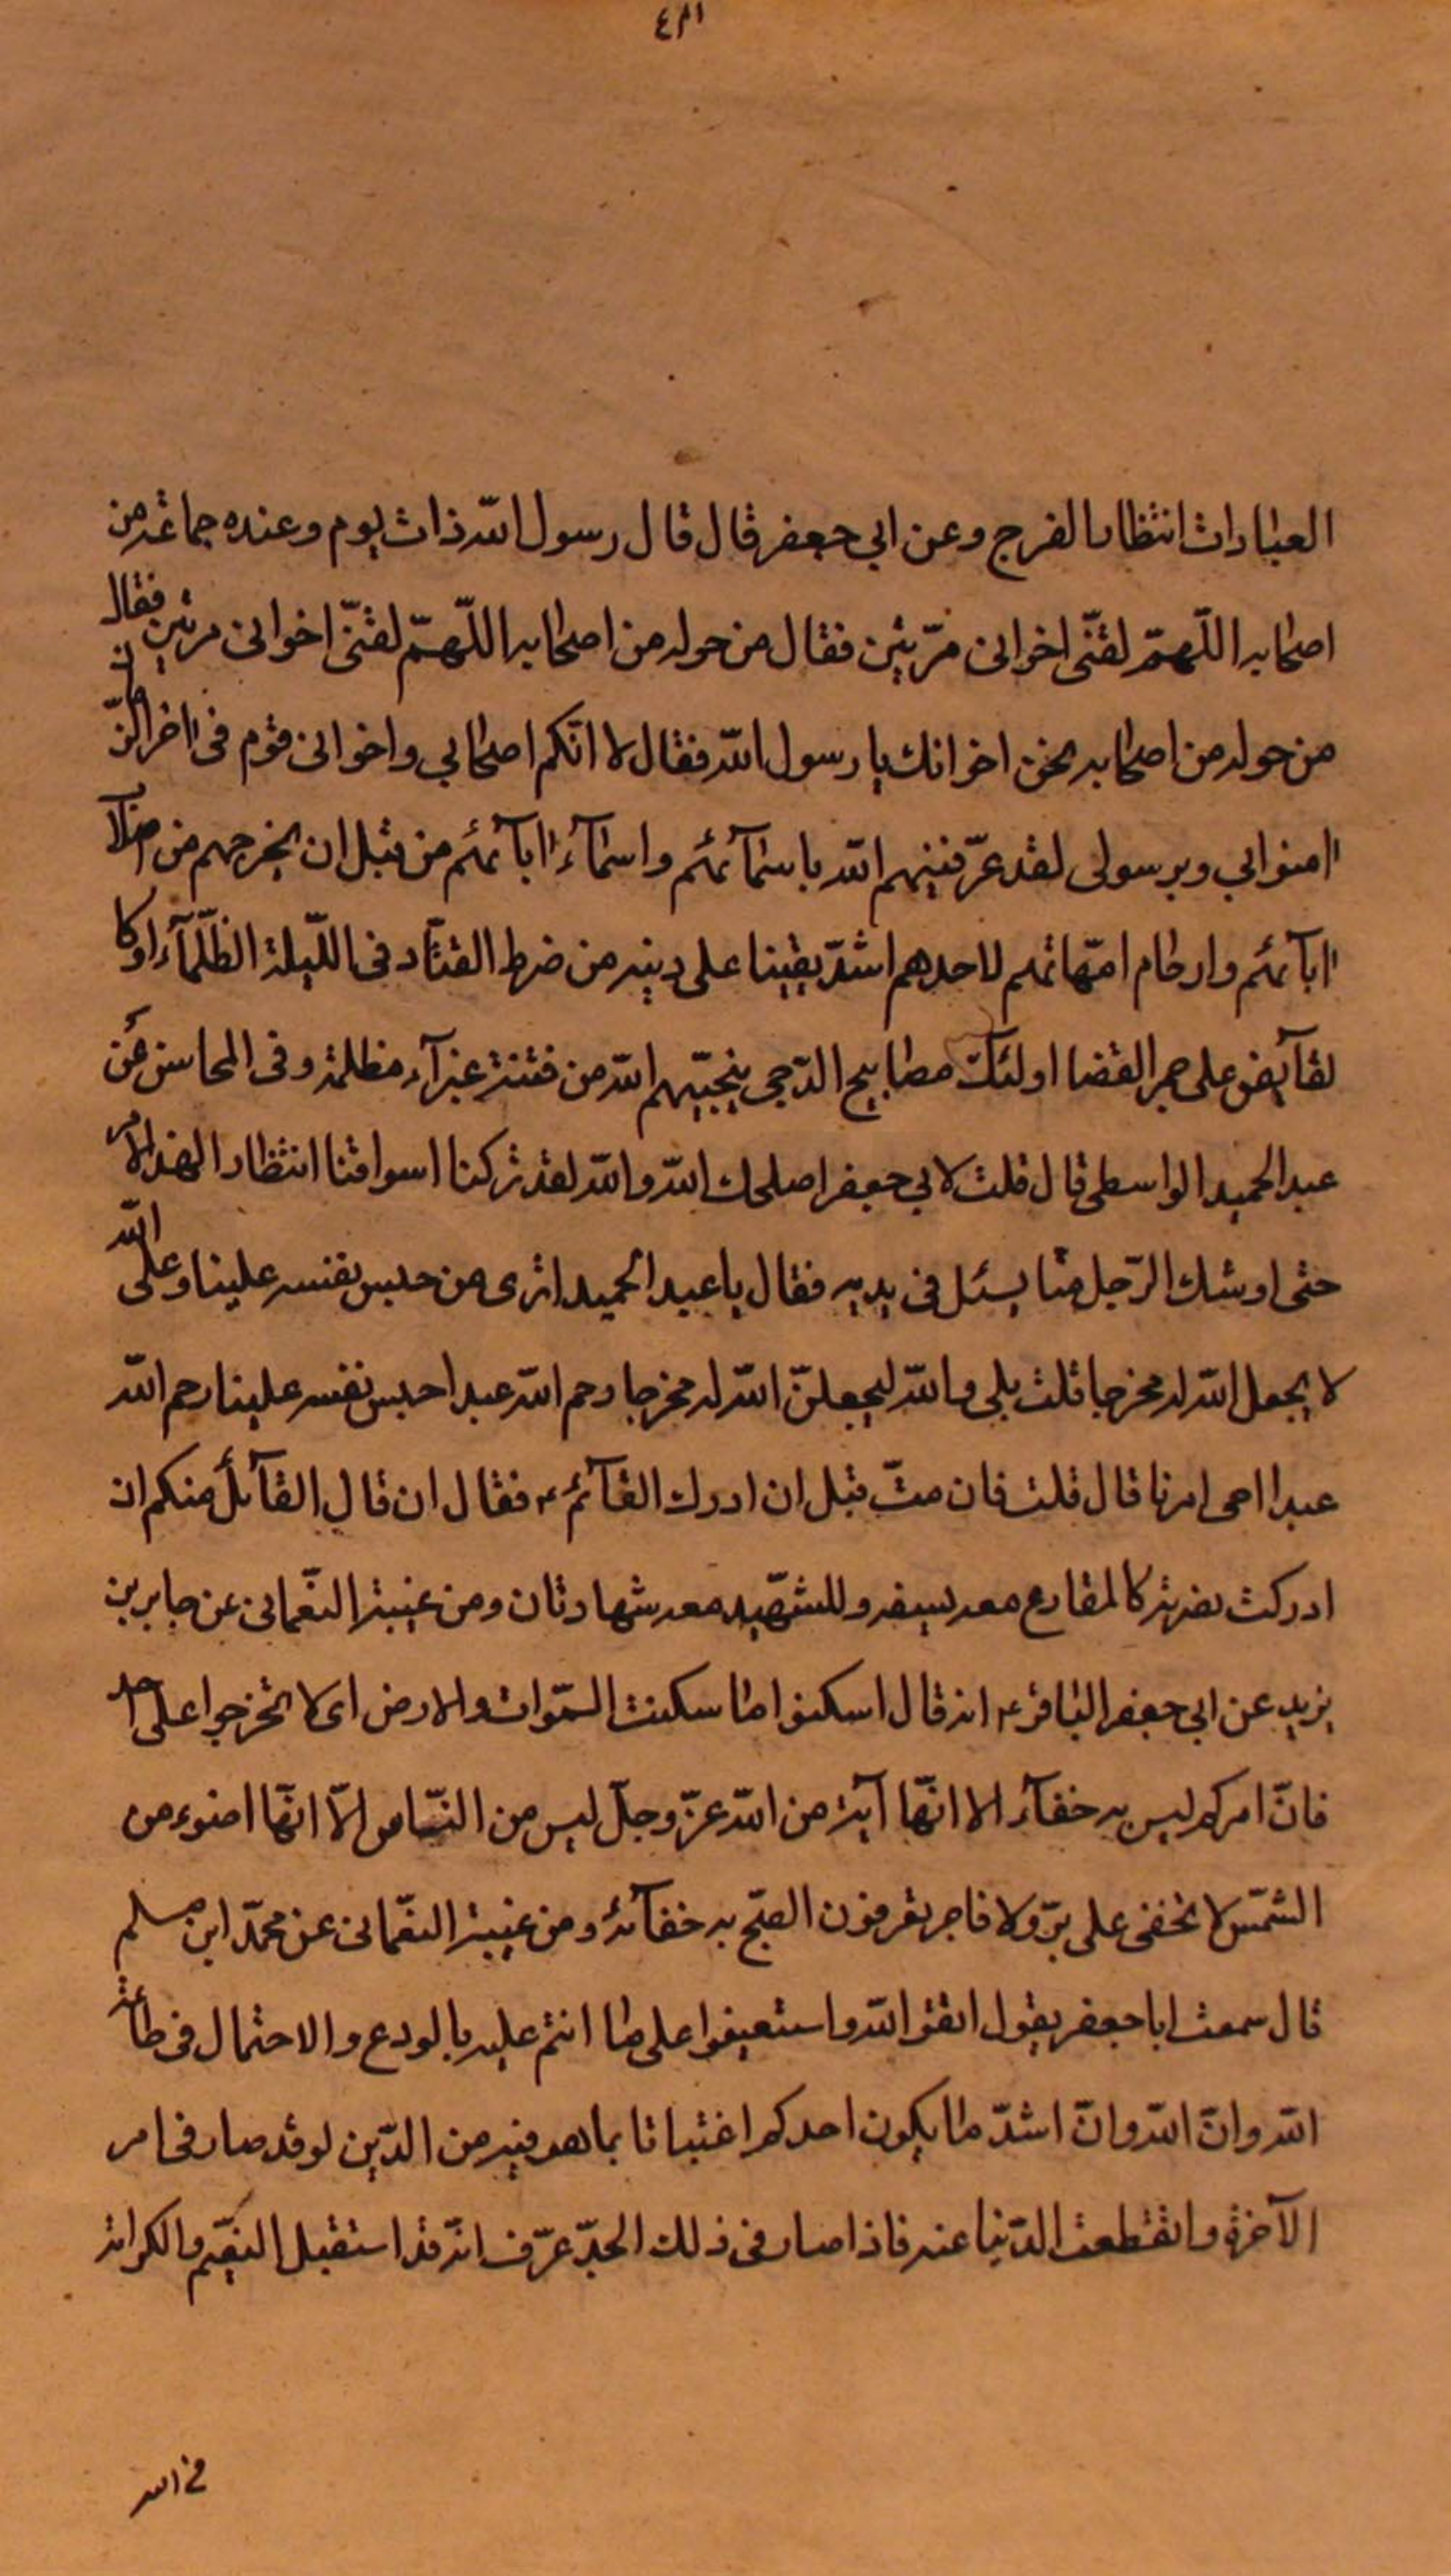 العبادات انتظار الفرج وعن ابي جعفر قال قال رسول الله ذات يوم وعنده جماعة من
اصحابه اللّهمّ لقنّى اخوانى مرّتين فقال من حوله من اصحابه اللّهمّ لقنّى اخوانى مرتين فقال
من حوله من اصحابه نحن اخوانك يا رسول الله فقال لا انّكم اصحابي واخوانى قوم فى اخر الزّمان
امنوا بي وبرسولى لقد عرّفنيهم الله باسمآئهم واسمآء ابآئهم من قبل ان يخرجهم من اصلاب
ابآئهم وارحام امّهاتهم لاحدهم اشدّ يقينا على دينه من خرط القتاد فى اللّيلة الظّلمآء او كا
لقآبض على جمر الغضا اولئك مصابيح الدّجى ينجيّهم الله من فتنة غبرآء مظلمة وفى المحاسن عن
عبد الحميد الواسطى قال قلت لابي جعفر اصلحك الله والله لقد تركنا اسواقنا انتظارا لهذا الامر
حتى اوشك الرّجل منّا يسئل فى يديه فقال يا عبد الحميد اترى من حبس نفسه علينا وعلى الله
لا يجعل الله له مخرجا قلت بلى والله ليجعلنّ الله له مخرجا رحم الله عبدا حبس نفسه علينا رحم الله
عبدا احى امرنا قال قلت فان متّ قبل ان ادرك القآئم ع فقال ان قال القآئل منكم ان
ادركت نصرته كالمقارع معه بسيفه وللشهّيد معه شهادتان ومن غيبة النعّمانى عن جابر بن
يزيد عن ابي جعفر الباقر ع انه قال اسكنوا ما سكنت السّموات والارض اى لا تخرجوا على احد
فانّ امركم ليس به خفآء الا انّها آية من الله عزّ وجلّ ليس من النّاس الّا انّها اضوء من
الشمّس لا تخفى على برّ ولا فاجر تعرفون الصّبح به خفآئه ومن غيبة النعّمانى عن محمّد ابن مسلم
قال سمعت ابا جعفر يقول اتقوا الله واستعينوا على ما انتم عليه بالورع والاحتمال فى طاعة
الله وانّ الله وانّ اشدّ ما يكون احدكم اغتباتا بما هو فيه من الدّين لو قد صار فى امر
الآخرة وانقطعت الدّنيا عنه فاذا صار فى ذلك الحدّ عرّف انّه قد استقبل النعّيم والكرامة